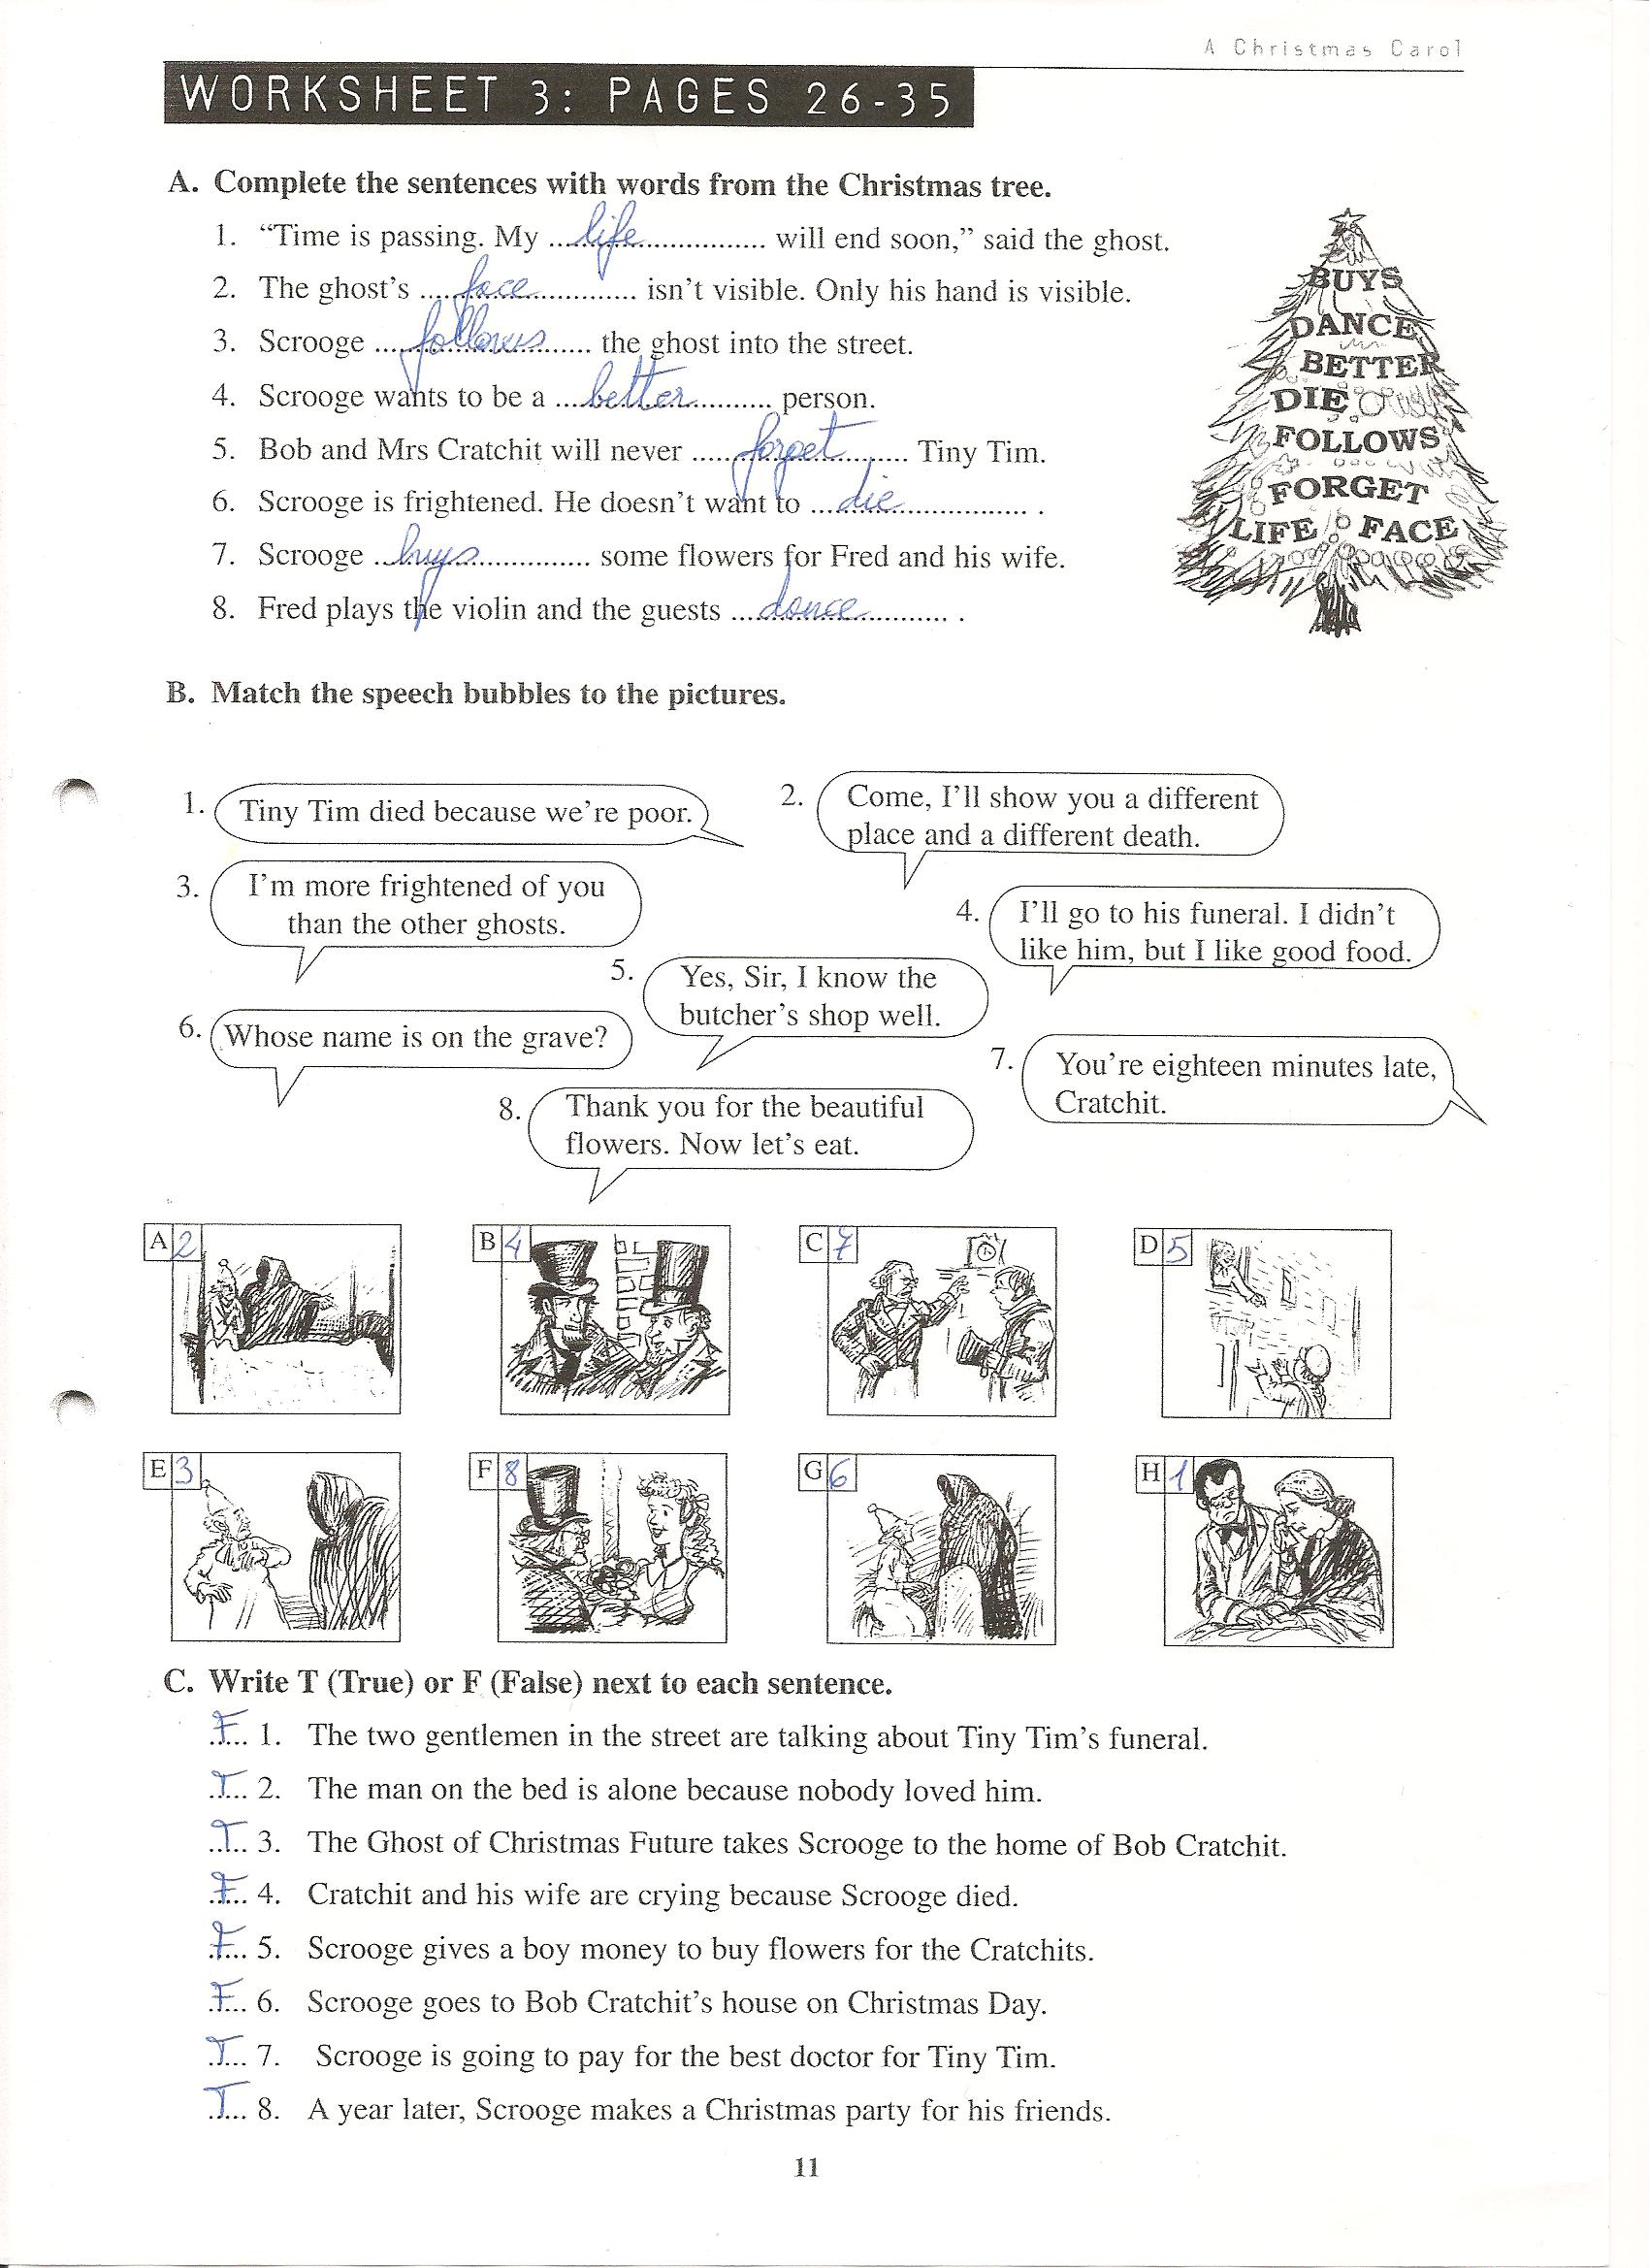 A Christmas Carol
WORKSHEET 3: PAGES 26-35
A. Complete the sentences with words from the Christmas tree.
1. “Time is passing. My ...life... will end soon,” said the ghost.
2. The ghost’s ...face... isn’t visible. Only his hand is visible.
3. Scrooge ...follows... the ghost into the street.
4. Scrooge wants to be a ...better... person.
5. Bob and Mrs Cratchit will never ...forget... Tiny Tim.
6. Scrooge is frightened. He doesn’t want to ...die... .
7. Scrooge ...buys... some flowers for Fred and his wife.
8. Fred plays the violin and the guests ...dance... .
BUYS
DANCE
BETTER
DIE
FOLLOWS
FORGET
LIFE FACE
B. Match the speech bubbles to the pictures.
1. Tiny Tim died because we’re poor.
2. Come, I’ll show you a different
place and a different death.
3. I’m more frightened of you
than the other ghosts.
4. I’ll go to his funeral. I didn’t
like him, but I like good food.
5. Yes, Sir, I know the
butcher’s shop well.
6. Whose name is on the grave?
7. You’re eighteen minutes late,
Cratchit.
8. Thank you for the beautiful
flowers. Now let’s eat.
A 2
B 4
C 7
D 5
E 3
F 8
G 6
H 1
C. Write T (True) or F (False) next to each sentence.
F 1. The two gentlemen in the street are talking about Tiny Tim’s funeral.
T 2. The man on the bed is alone because nobody loved him.
T 3. The Ghost of Christmas Future takes Scrooge to the home of Bob Cratchit.
F 4. Cratchit and his wife are crying because Scrooge died.
F 5. Scrooge gives a boy money to buy flowers for the Cratchits.
F 6. Scrooge goes to Bob Cratchit’s house on Christmas Day.
T 7. Scrooge is going to pay for the best doctor for Tiny Tim.
T 8. A year later, Scrooge makes a Christmas party for his friends.
11